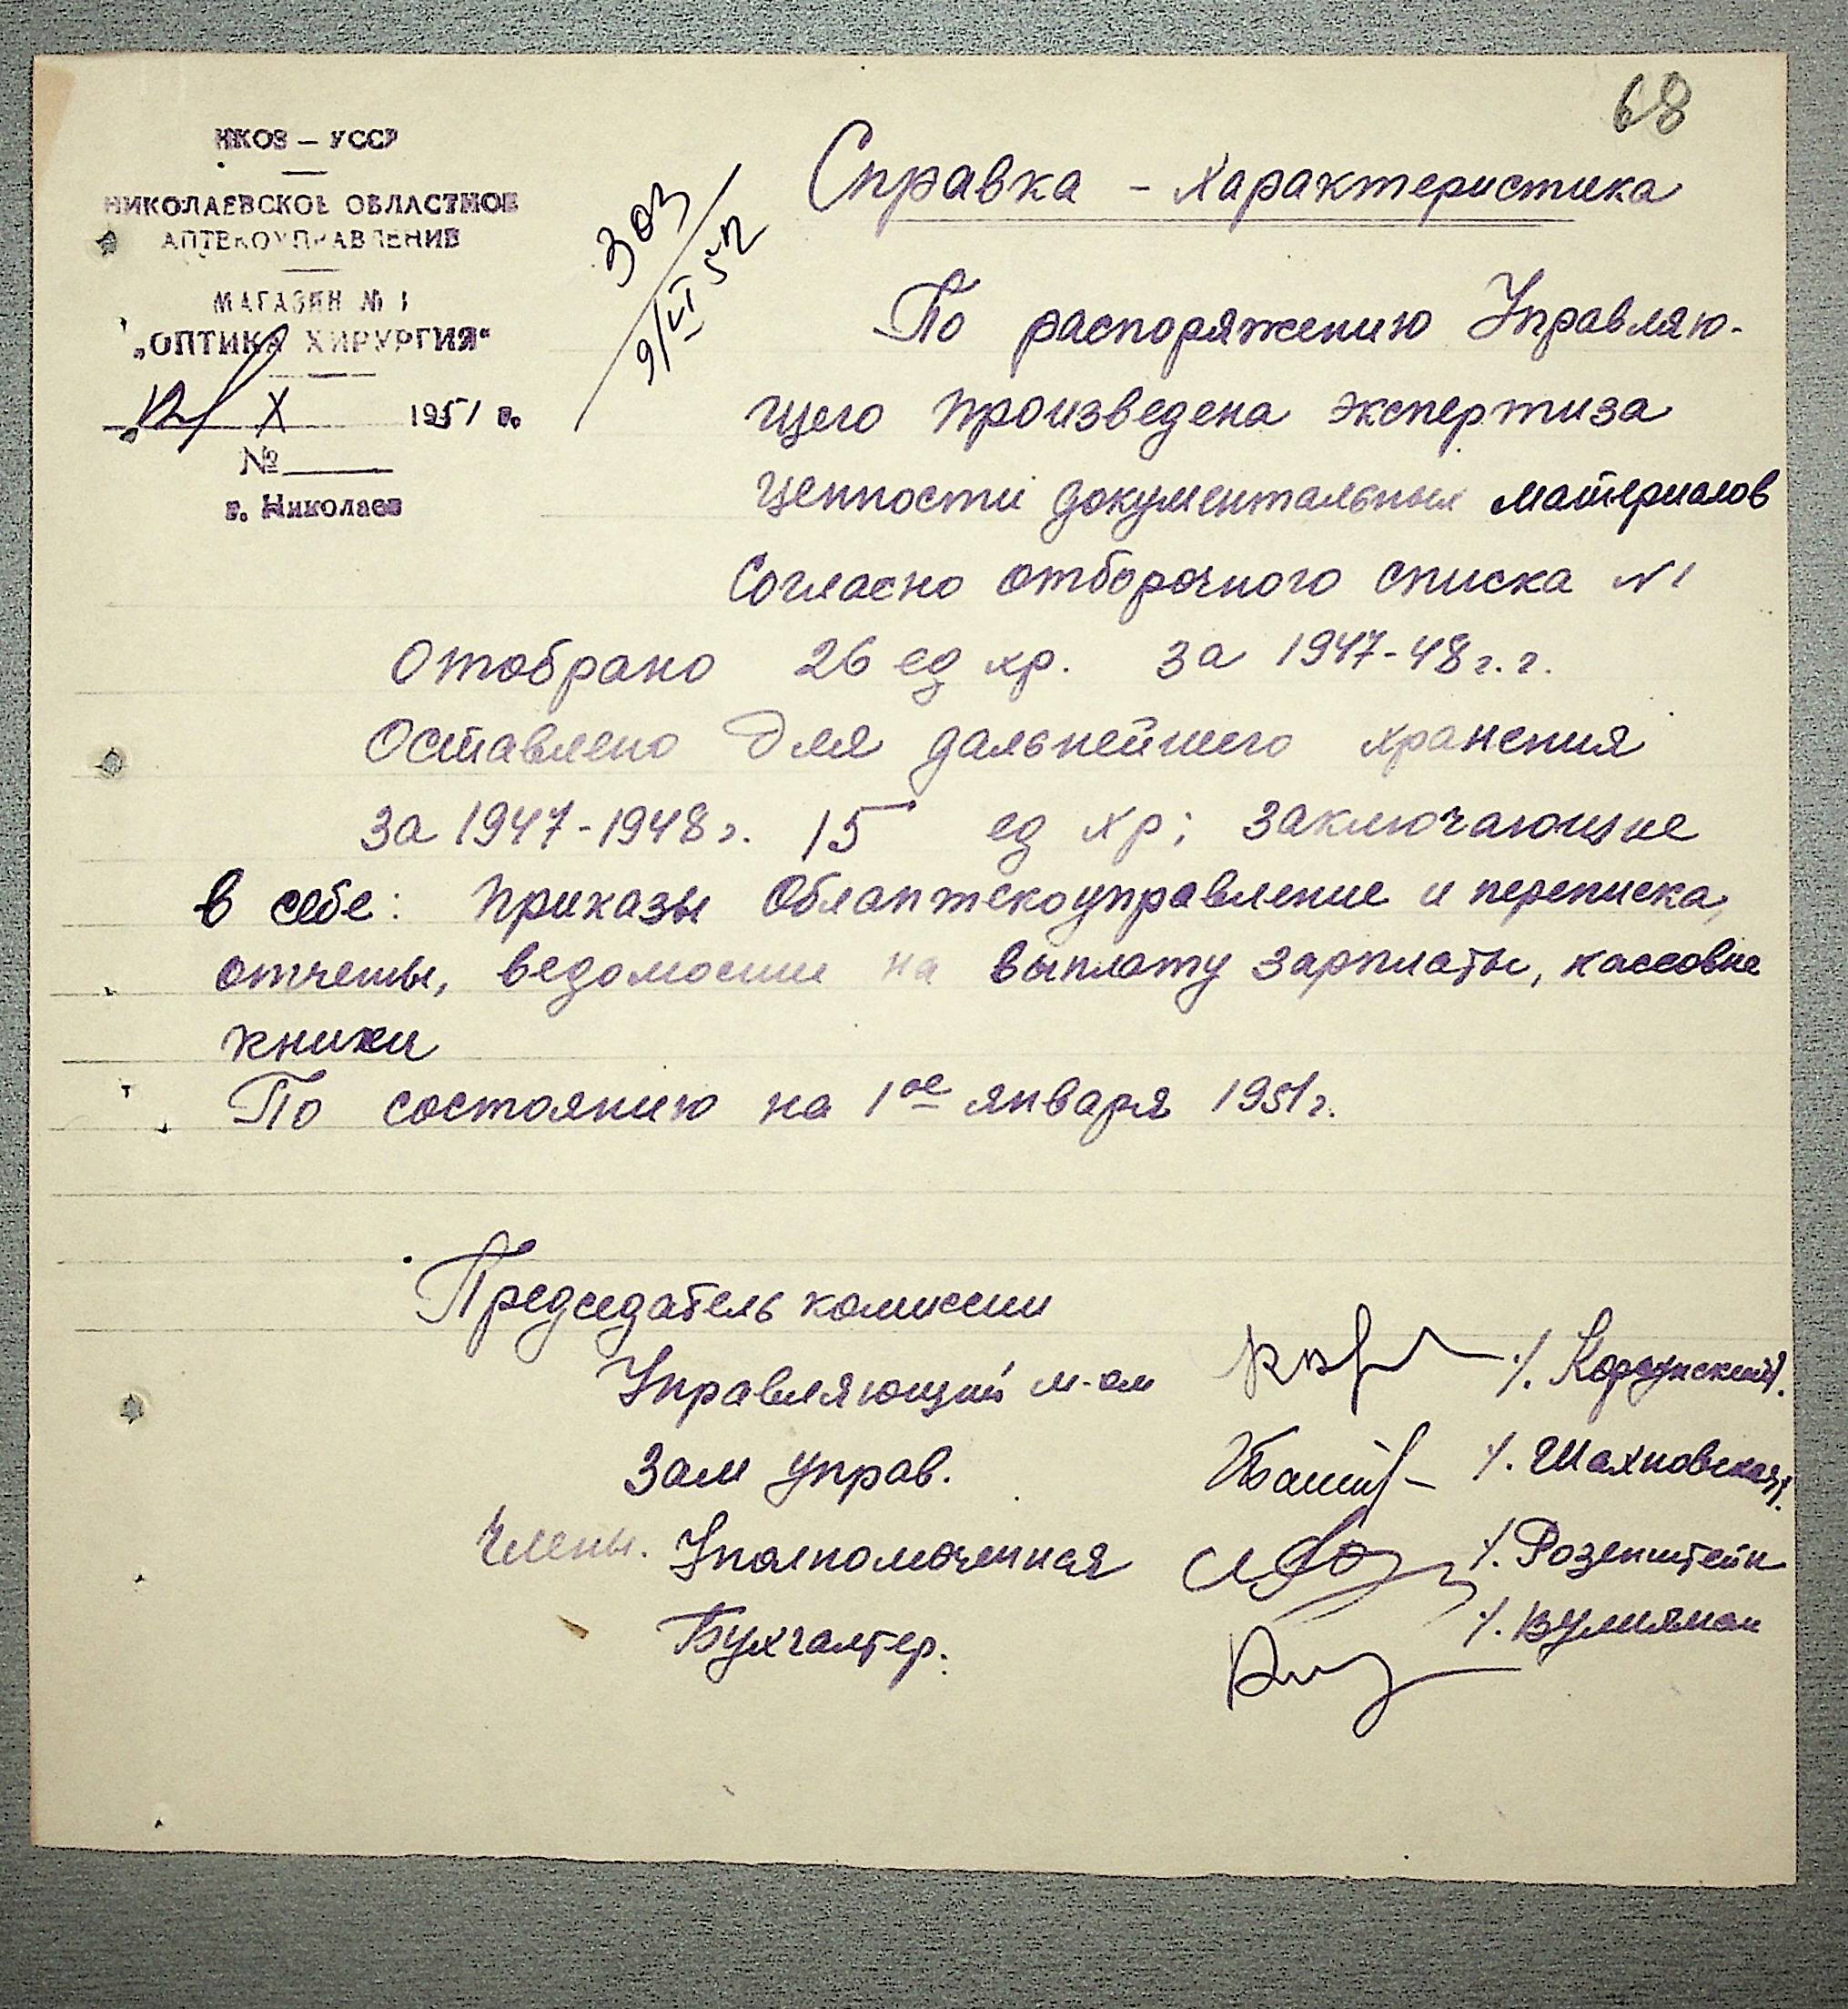 68
НКОЗ – УССР
НИКОЛАЕВСКОЕ ОБЛАСТНОЕ
АПТЕКОУПРАВЛЕНИЕ
МАГАЗИН № 1
„ОПТИКА ХИРУРГИЯ“
12/ X 1951 г.
№
г. Николаев
303
9/VI 52
Справка - характеристика
По распоряжению Управляю-
щего произведена экспертиза
ценности документальных материалов
Согласно отборочного списка N1
Отобрано 26 ед хр. за 1947-48 г.г.
Оставлено для дальнейшего хранения
за 1947-1948 г. 15 ед хр; заключающие
в себе: Приказы Облаптекоуправление и переписка,
отчеты, ведомости на выплату зарплаты, кассовые
книжки
По состоянию на 1ое января 1951 г.
Председатель комиссии
Управляющий м-ом
Зам управ. /. Шахновская/.
Члены. Уполномоченная /. Розенштейн
Бухгалтер.